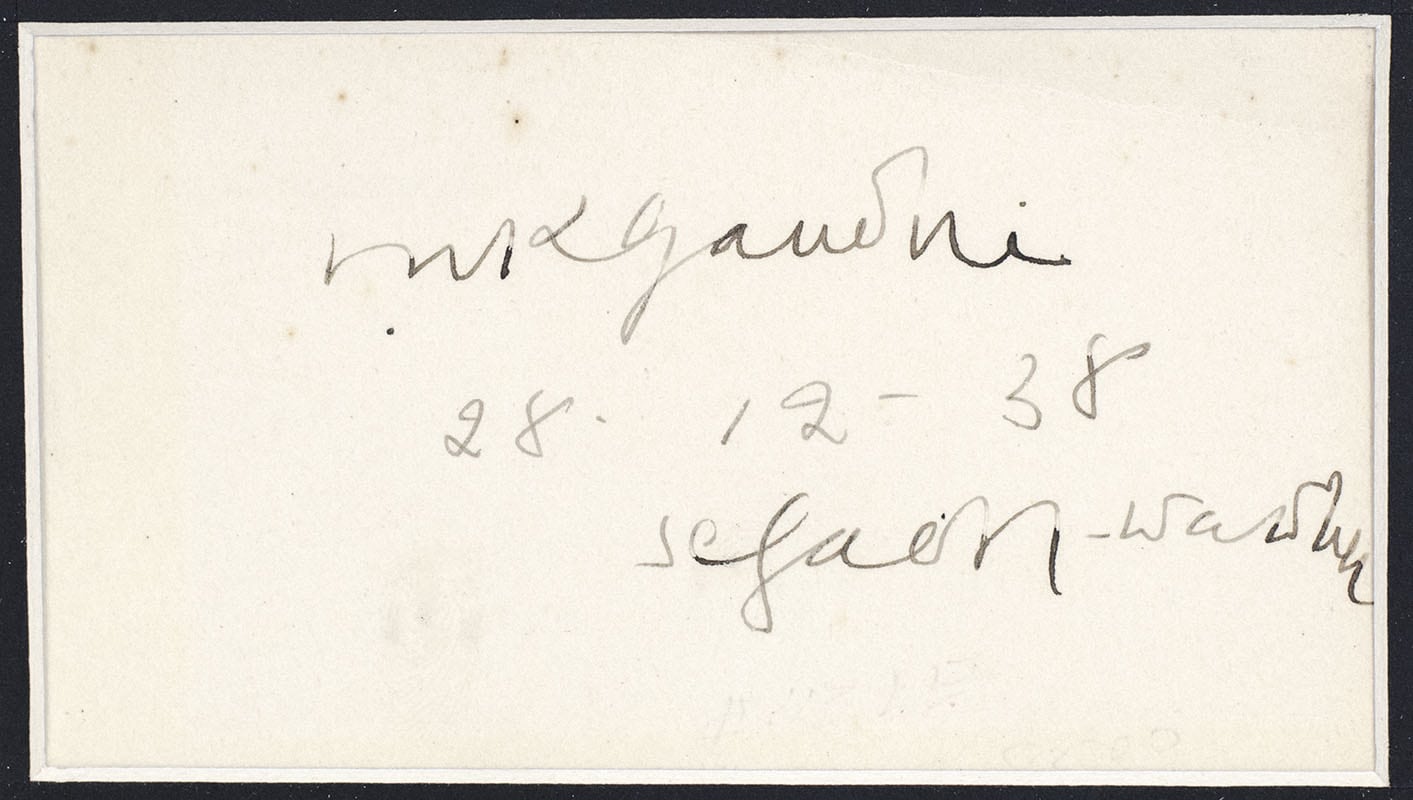 mkgandhi
28. 12 - 38
segaon-wardha